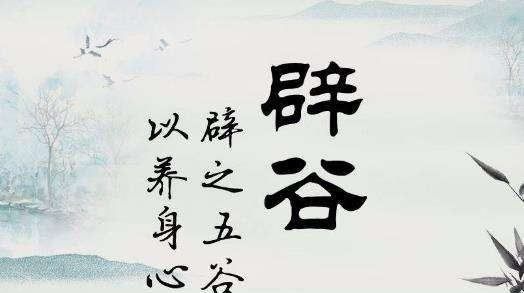 辟谷
辟之五谷
以养身心